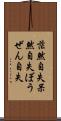 茫然自失呆
然自失ぼう
ぜん自失